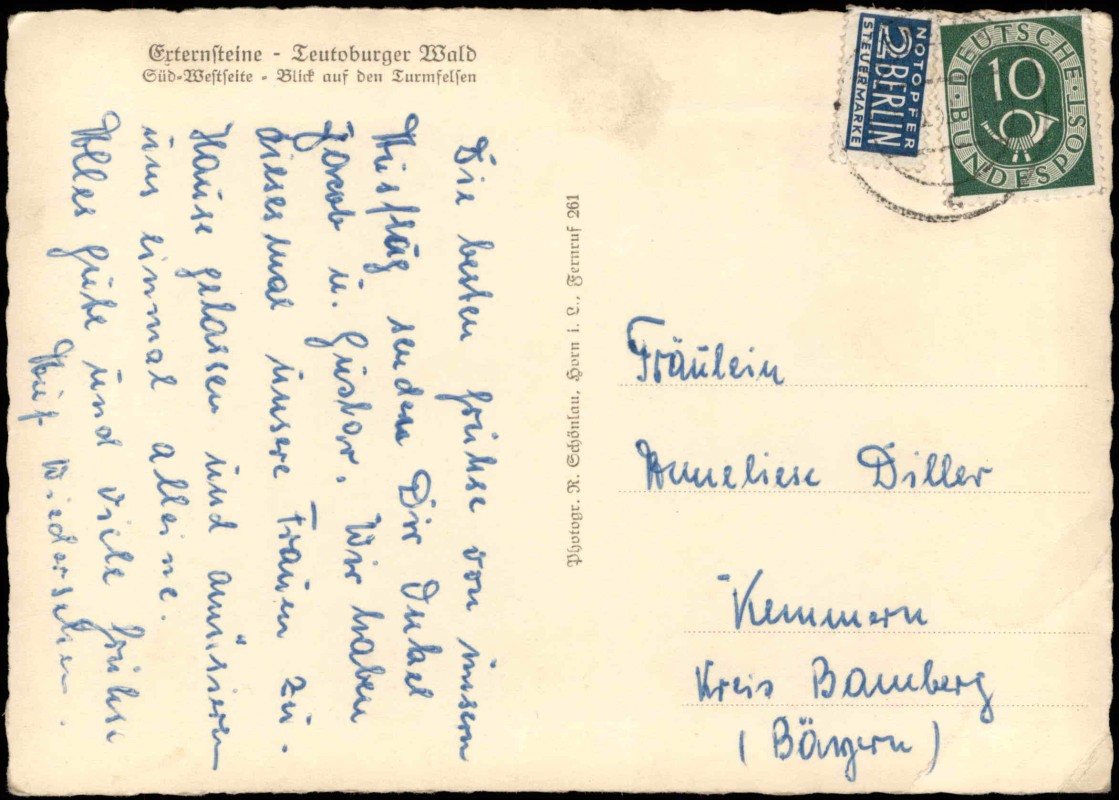 Externsteine - Teutoburger Wald
Süd-Westseite - Blick auf den Turmfelsen
Die besten Grüße von unserm
Ausflug senden Dir Onkel
Jacob u. Gustav. Wir haben
dieses mal unsere Frauen zu
Hause gelassen und amüsieren
uns einmal alleine.
Alles gute und viele Grüße
Auf Wiedersehen.
Photogr. R. Schönlau, Horn i. L., Fernruf 261
NOTOPFER
2 BERLIN
STEUERMARKE
DEUTSCHE
BUNDESPOST
10
Fräulein
Anneliese Diller
Kemmern
Kreis Bamberg
(Bayern)